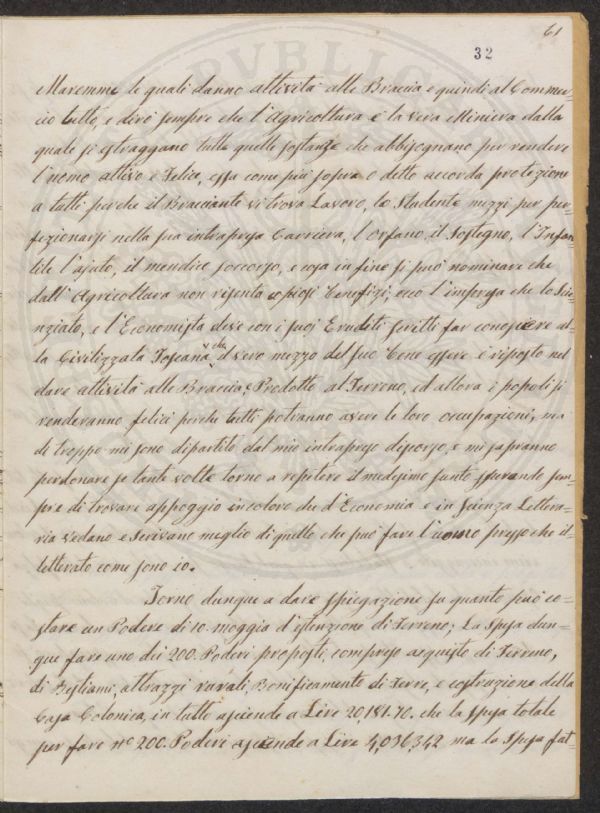 61
32
Maremme le quali danno attività alle Braccia e quindi al Commer-
cio tutto, e dirò sempre che l'Agricoltura è la vera Miniera dalla
quale si estraggano tutte quelle sostanze che abbisognano per rendere
l'uomo attivo e Felice, essa come più sopra o detto accorda protezione
a tutti perche il Bracciante vi trova Lavoro, lo Studente mezzi per per-
fezionarsi nella sua intrapresa Carriera, l'Orfano, il Sostegno, l'Infan-
tile l'ajuto, il mendico soccorso, e cosa in fine si può nominare che
dall'Agricoltura non risenta copiosi benefizi, ecco l'impresa che lo Scie-
nziato, e l'Economista deve con i suoi Eruditi scritti far conoscere al-
la Civilizzata Toscana che il vero mezzo del suo bene essere è riposto nel
dare attività alle Braccia, Prodotto al Terreno, ed allora i popoli si
renderanno felici perche tutti potranno avere le loro occupazioni, ma
di troppo mi sono dipartito dal mio intrapreso discorso, e mi sapranno
perdonare se tante volte torno a repetere il medesimo punto sperando sem-
pre di trovare appoggio in coloro che d'Economia e in scienza Lettera-
ria vedano e Scrivano meglio di quello che può fare l'uomo presso che il-
letterato come sono io.
Torno dunque a dare spiegazione su quanto può co-
stare un Podere di 10. moggia d'estenzione di Terreno; La spesa dun-
que fare uno dei 200. Poderi proposti, compreso acquisto di Terreno,
di Bestiami, attrazzi rurali, Bonificamento di Terre, e costruzione della
Casa Colonica, in tutto asciende a Lire 20,181.70. che la spesa totale
per fare n° 200. Poderi asciende a Lire 4,036,342 ma la Spesa fat-